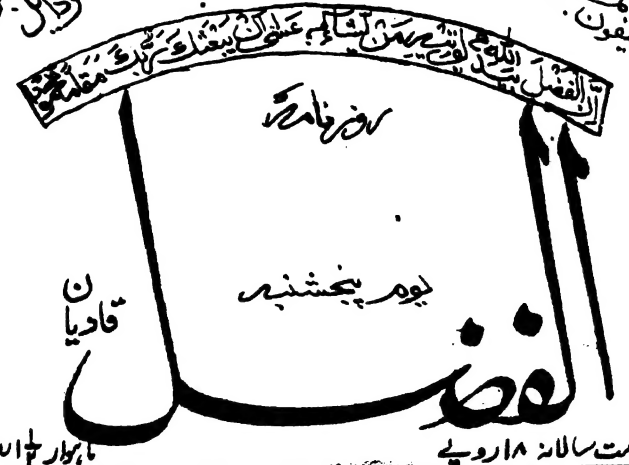 ٹیلیفون
ان الفضل بید اللہ یوتیہ من یشاء عسٰی ان یبعثک ربک مقاما محمودا
روزنامہ
یوم پنجشنبہ
قادیان
الفضل
سالانہ ۱۸ روپے
ماہوار